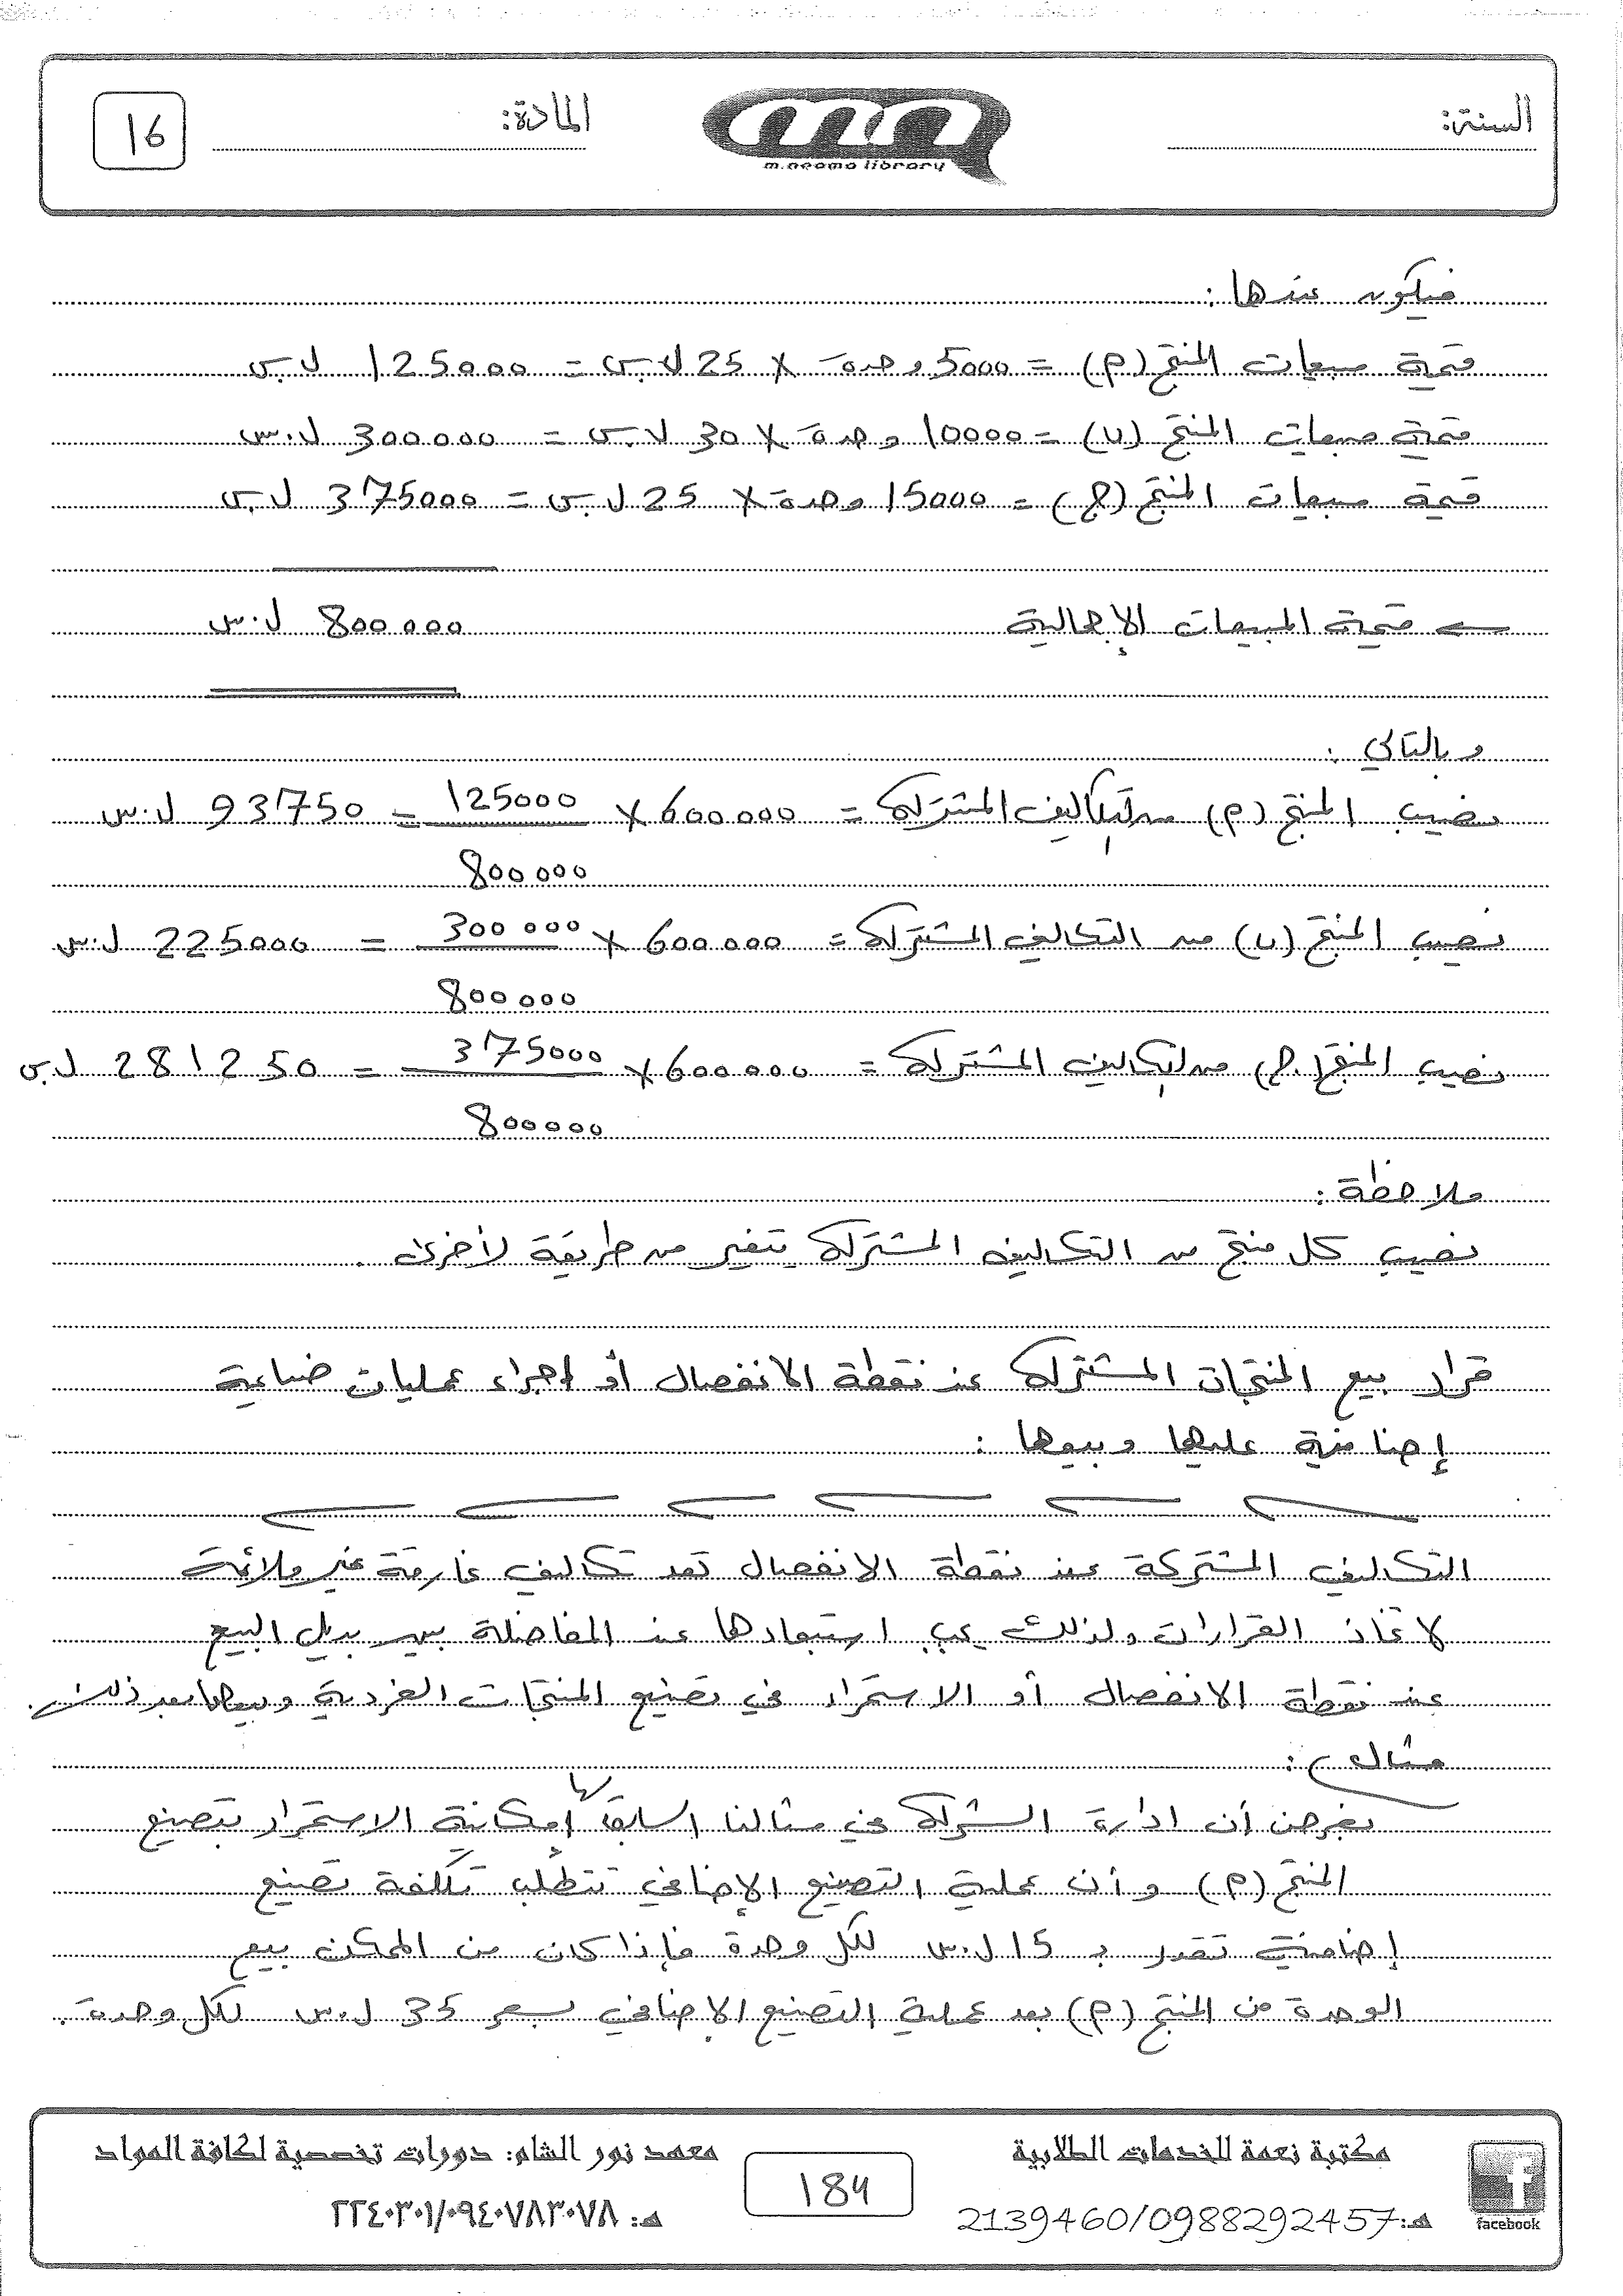 السنة:
m.neama library
المادة:
16
فيكون عندها :
قيمة مبيعات المنتج (م) = 5000 وحدة × 25 ل.س = 125000 ل.س
قيمة مبيعات المنتج (ب) = 10000 وحدة × 30 ل.س = 300000 ل.س
قيمة مبيعات المنتج (ج) = 15000 وحدة × 25 ل.س = 375000 ل.س
قيمة المبيعات الإجمالية 800000 ل.س
وبالتالي :
نصيب المنتج (م) من التكاليف المشتركة = 600000 × 125000 = 93750 ل.س
800000
نصيب المنتج (ب) من التكاليف المشتركة = 600000 × 300000 = 225000 ل.س
800000
نصيب المنتج (ج) من التكاليف المشتركة = 600000 × 375000 = 281250 ل.س
800000
ملاحظة :
نصيب كل منتج من التكاليف المشتركة يتغير من طريقة لأخرى .
قرار بيع المنتجات المشتركة عند نقطة الانفصال أو إجراء عمليات صناعية
إضافية عليها وبيعها :
التكاليف المشتركة عند نقطة الانفصال تعد تكاليف غارقة غير ملائمة
لاتخاذ القرارات ولذلك يجب استبعادها عند المفاضلة بين بديل البيع
عند نقطة الانفصال أو الاستمرار في تصنيع المنتجات الفردية وبيعها بعد ذلك .
مثال :
بفرض أن ادارة الشركة في مثالنا السابق لها إمكانية الاستمرار بتصنيع
المنتج (م) وأن عملية التصنيع الإضافي تتطلب تكلفة تصنيع
إضافية تقدر بـ 15 ل.س لكل وحدة فإذا كان من الممكن بيع
الوحدة من المنتج (م) بعد عملية التصنيع الإضافي بسعر 35 ل.س لكل وحدة .
مكتبة نعمة للخدمات الطلابية
هـ: 2139460/0988292457
facebook
184
معهد نور الشام: دورات تخصصية لكافة المواد
هـ: ٢٢٤٠٣٠١/٠٩٤٠٧٨٣٠٧٨